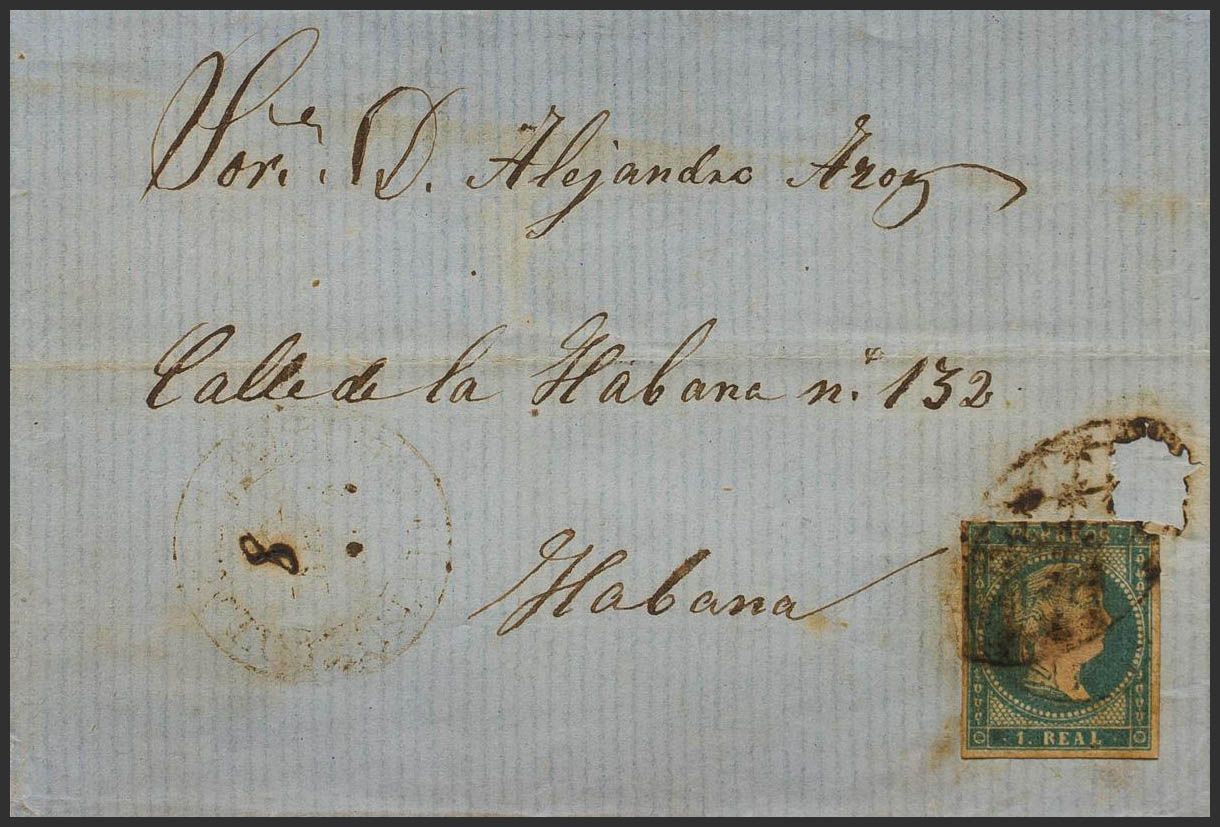 Sor. D. Alejandro
Calle de la Habana n.º 132
Habana
8
CORREOS
1. REAL